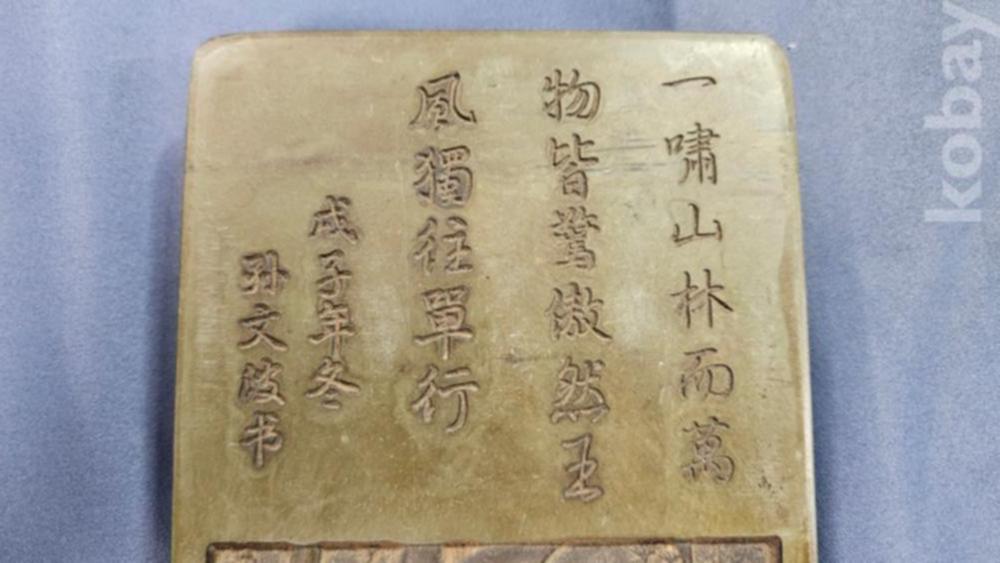 一嘯山林而萬
物皆驚傲然王
風獨往單行
戍子年冬
孙文波书
kobay